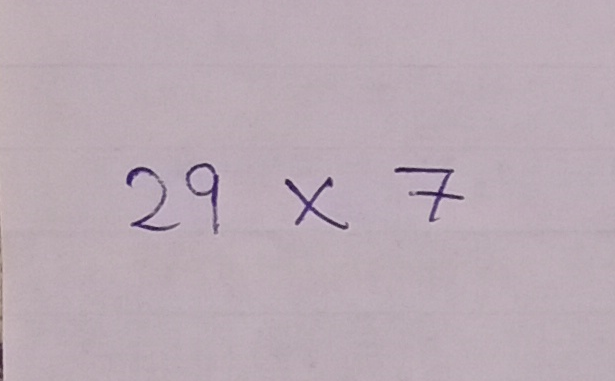 29 × 7